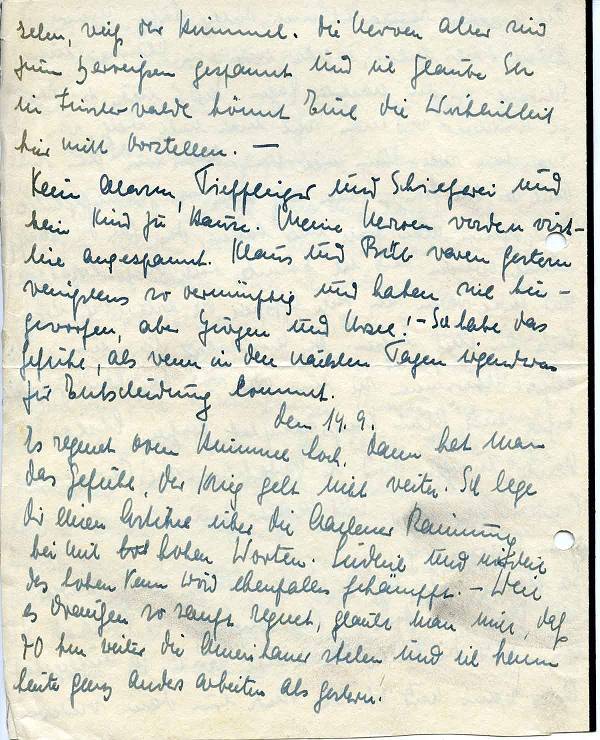 sehen, weiß der Himmel. Die Nerven aber sind
zum Zerreißen gespannt und ich glaube Ihr
in Finsterwalde könnt Euch die Wirklichkeit
hier nicht vorstellen. —
Kein Alarm, Tiefflieger und Schießerei und
kein Kind zu Hause. Meine Nerven werden wirk-
lich angespannt. Klaus und waren gestern
wenigstens so vernünftig und haben sich hin-
geworfen, aber Jürgen und Ursel! – Ich habe das
Gefühl, als wenn in den nächsten Tagen irgendwas
zur Entscheidung kommt.
Den 14. 9.
Es regnet vom Himmel hoch, dann hat man
das Gefühl, der Krieg geht nicht weiter. Ich lege
Dir einen Artikel über die Aachener Räumung
bei mit hohen Worten. Südlich und nördlich
des hohen Venn wird ebenfalls gekämpft. – Weil
es draußen so sanft regnet, glaubt man nicht, daß
70 km weiter die Amerikaner stehen und ich kann
heute ganz anders arbeiten als gestern!